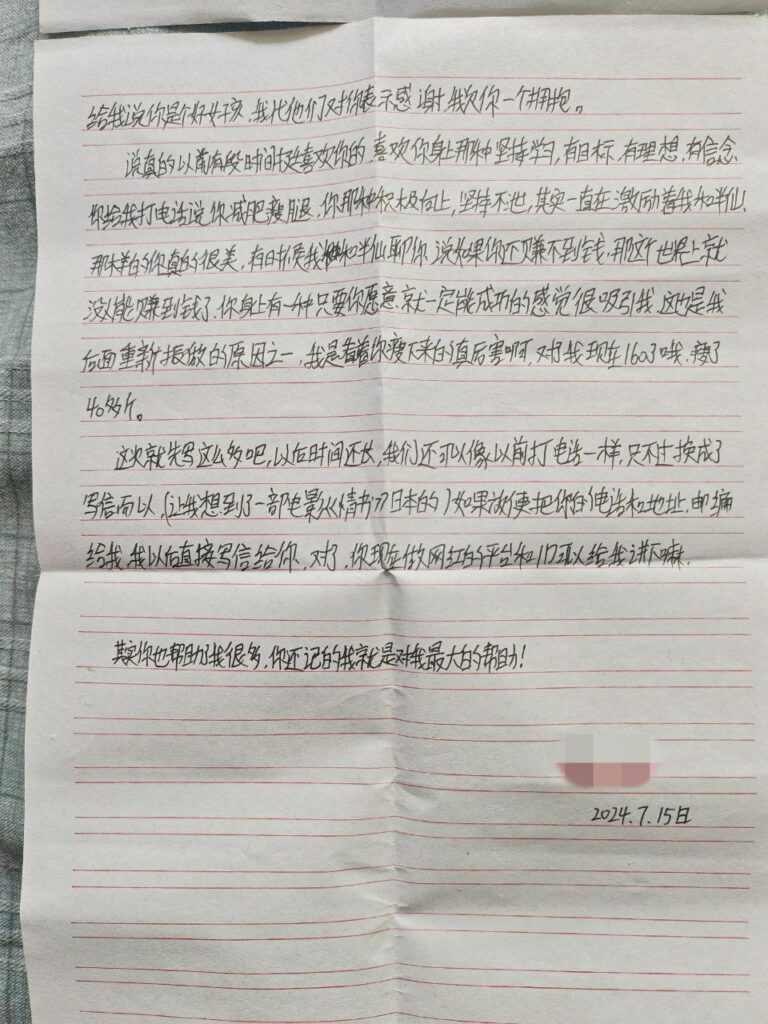 给我说你是个好女孩，我代他们对你表示感谢，我欠你一个拥抱。
说真的以前有段时间挺喜欢你的，喜欢你身上那种坚持学习，有目标，有理想，有信念
你给我打电话说你减肥瘦腿，你那种积极向上，坚持不屈，其实一直在激励着我和半仙
那样的你真的很美，有时候我和半仙聊你，说如果你还赚不到钱，那这个世界上就
没人能赚到钱了，你身上有一种只要你愿意就一定能成功的感觉很吸引我，这也是我
后面重新振做的原因之一，我是看着你瘦下来的真厉害啊，对了我现在160了哦，瘦了
40多斤。
这次就先写这么多吧，以后时间还长，我们还可以像以前打电话一样，只不过换成了
写信而以（让我想到了一部电影《情书》日本的）如果放便把你的电话和地址，邮编
给我，我以后直接写信给你，对了，你现在做网红的平台和ID可以给我讲下嘛，
其实你也帮助了我很多，你还记的我就是对我最大的帮助！
2024.7.15日